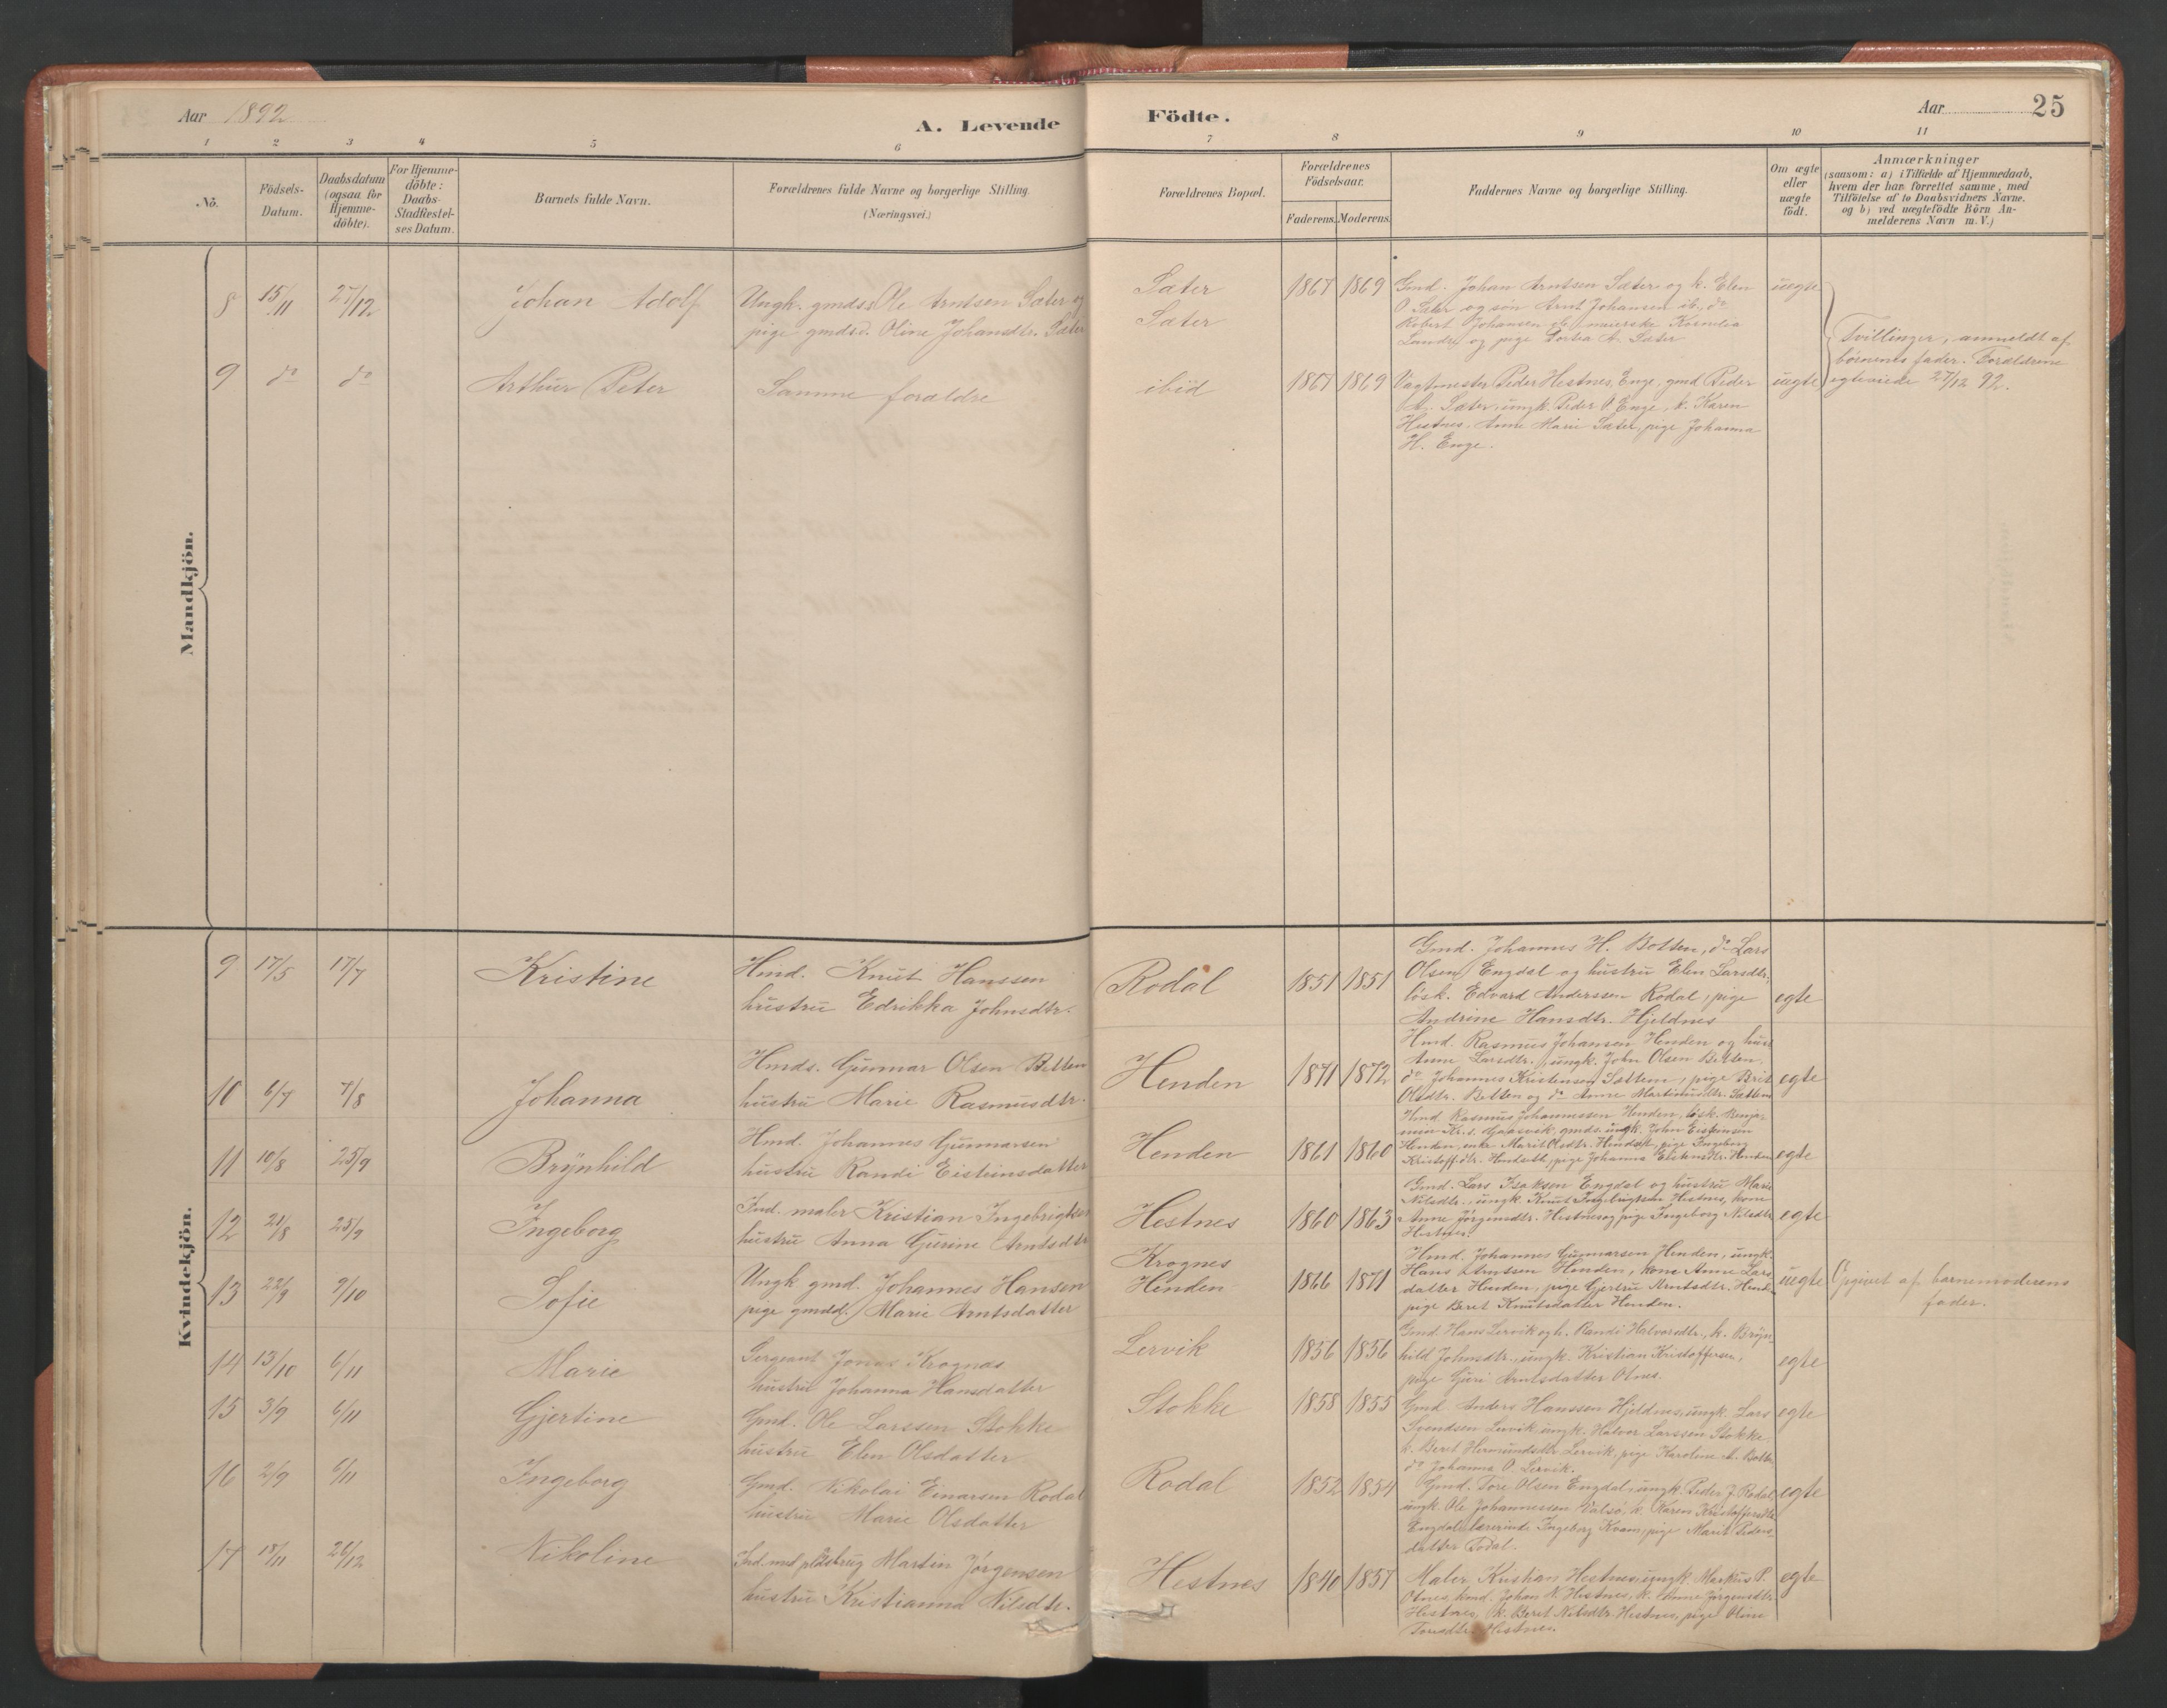 Aar 1892
A. Levende
Födte.
Aar
25
1 2 3 4 5 6 7 8 9 10 11
No.
Födsels-
Datum.
Daabsdatum
(ogsaa for
Hjemme-
döbte).
For Hjemme-
döbte:
Daabs-
Stadfæstel-
ses Datum.
Barnets fulde Navn.
Forældrenes fulde Navne og borgerlige Stilling.
(Næringsvei.)
Forældrenes Bopæl.
Forældrenes
Födselsaar.
Faderens. Moderens.
Faddernes Navne og borgerlige Stilling.
Om ægte
eller
uægte
födt.
Anmærkninger
(saasom: a) i Tilfælde af Hjemmedaab,
hvem der har forrettet samme, med
Tilföielse af to Daabsvidners Navne.
og b) ved uægtefödte Börn An-
melderens Navn m. V.)
Mandkjön.
8 15/11 27/12 Johan Adolf
Ungk. gmds. Ole Arntsen Sæter og
pige gmdsd. Oline Johansdtr. Sæter
Sæter
Sæter
1867 1869
Gmd. Johan Arntsen Sæter og k. Elen
O. Sæter og søn Arnt Johansen ib., do
Robert Johansen ib., meierske
og pige A. Sæter
uegte
Tvillinger, anmeldt af
børnenes fader. Forældrene
egteviede 27/12 92.
9 do do Arthur Peter
Samme forældre
ibid
1867 1869
Vagtmester Peder Hestnes, Enge, gmd Peder
A. Sæter, ungk. Peder O. Enge, k. Karen
Hestnes. Anne Marie Sæter, pige Johanna
H. Enge.
uegte
Kvindekjön.
9 17/5 17/7 Kristine
Hmd. Knut Hanssen
hustru Edrikka Johnsdtr.
Rodal
1851 1851
Gmd. Johannes H. Botten, do Lars
Olsen Engdal og hustru Elen Larsdtr,
løsk. Edvard Anderssen Rodal, pige
Andrine Hansdtr. Hjeldnes
egte
10 6/7 7/8 Johanna
Hmds. Gunnar Olsen Betten
hustru Marie Rasmusdtr.
Henden
1871 1872
Hmd. Rasmus Johansen Henden og hust
Anne Larsdtr., ungk. John Olsen Betten,
do Johannes Kristensen Sættem, pige Brit
Olsdtr. Betten og do Anne Martinusdtr. Sættem
egte
11 10/8 25/9 Brynhild
Hmd. Johannes Gunnarsen
hustru Randi Eistensdatter
Henden
1861 1860
Hmd Rasmus Johannessen Henden, løsk. Benja-
min Kr. s. gmds. ungk. John Eistensen
Henden, enke Marit Olsdtr. Hendset, pige Ingeborg
Kristoff.dtr. Hendseth, pige Johanna Eistensdtr. Henden
egte
12 21/8 25/9 Ingeborg
Ind. maler Kristian Ingebrigtsen
hustru Anna Gurine Arntsdtr
Hestnes
1860 1863
Gmd. Lars Isaksen Engdal og hustru Marie
Nilsdtr., ungk. Knut Ingebrigtsen Hestnes, kone
Anne Jørgensdtr. Hestnes og pige Ingeborg Nilsdtr
Hestnes.
egte
13 22/9 9/10 Sofie
Ungk gmd. Johannes Hansen
pige gmdd. Marie Arntsdatter
Krognes
Henden
1866 1871
Hmd. Johannes Gunnarsen Henden, ungk.
Hans Arntsen Henden, kone Anne Lars-
datter Henden, pige Gjertru Arntsdtr. Hend.
pige Beret Knutsdatter Henden.
uegte
Opgivet af barnemoderens
fader.
14 13/10 6/11 Marie
Sergeant Jonas Krognæs
hustru Johanna Hansdatter
Lervik
1856 1856
Gmd Hans Lervik og h. Randi Halvorsdtr., k. Bryn-
hild Johnsdtr., ungk. Kristian Kristoffersen,
pige Guri Arntsdatter Otnes.
egte
15 3/9 6/11 Gjertine
Gmd. Ole Larssen Stokke
hustru Elen Olsdatter
Stokke
1858 1855
Gmd Anders Hanssen Hjeldnes, ungk. Lars
Svendsen Lervik, ungk. Halvor Larssen Stokke,
k. Beret Hermundsdtr. Lervik, pige Karoline A. Botten
do Johanna O. Lervik.
egte
16 2/9 6/11 Ingeborg
Gmd. Nikolai Einarsen Rodal
hustru Marie Olsdatter
Rodal
1852 1854
Gmd. Tore Olsen Engdal, ungk. Peder J. Rodal
ungk. Ole Johannessen Valsø, k. Karen Kristoffersdtr
Engdal, lærerinde Ingeborg Kvam, pige Marit Peders-
datter Rodal.
egte
17 18/11 26/12 Nikoline
Ind. med pladsbrug Martin Jørgensen
hustru Kristianna Nilsdtr.
Hestnes
1840 1857
Maler Kristian Hestnes, ungk. Markus P.
Otnes, hmd. Johan N. Hestnes, k. Anne Jørgensdtr.
Hestnes, k. Beret Nilsdtr. Hestnes, pige Oline
Toresdtr. Hestnes.
egte